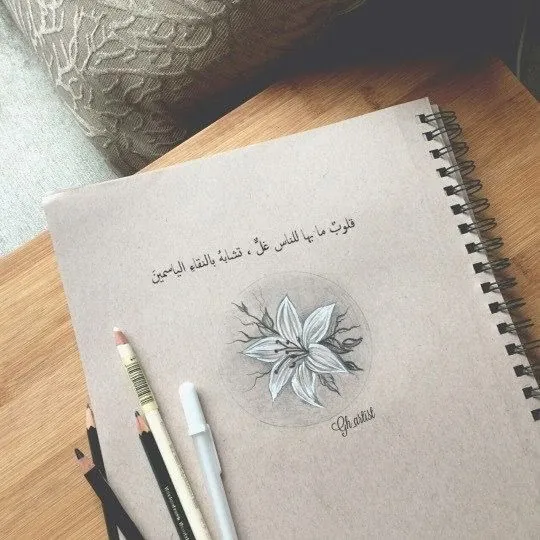 قلوبٌ ما بها للناس غلٌّ ، تشابهُ بالنقاءِ الياسمينَ
Gh.artist